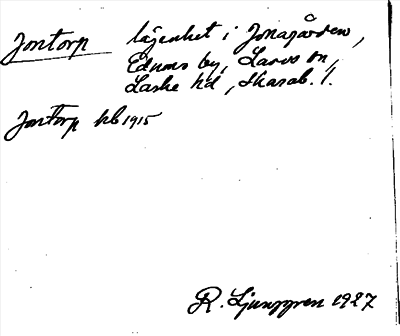 Jontorp lägenhet i Jonagården,
Edums by, Larvs sn,
Laske hd, Skarab. l.
Jontorp kb 1915
R. Ljunggren 1927